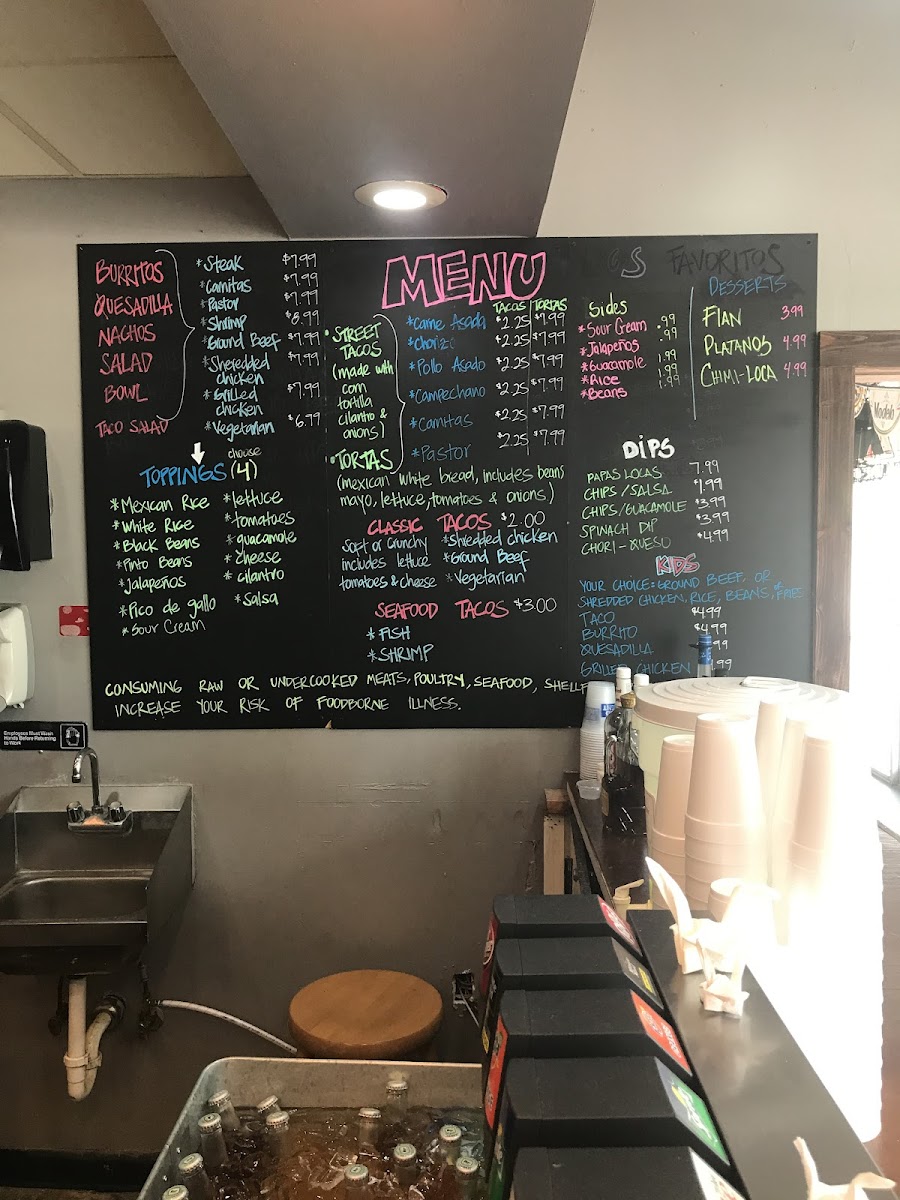 MENU
BURRITOS
QUESADILLA
NACHOS
SALAD
BOWL
TACO SALAD
*Steak $7.99
*Carnitas $7.99
*Pastor $7.99
*Shrimp $8.99
*Ground Beef $7.99
*Sheredded chicken $7.99
*Grilled chicken $7.99
*Vegetarian $6.99
choose
TOPPINGS (4)
*Mexican Rice
*White Rice
*Black Beans
*Pinto Beans
*Jalapeños
*Pico de gallo
*Sour Cream
*lettuce
*tomatoes
*guacamole
*cheese
*cilantro
*Salsa
TACOS TORTAS
•STREET TACOS
(made with
corn
tortilla
cilantro &
onions)
*Carne Asada $2.25 $7.99
*Chorizo $2.25 $7.99
*Pollo Asado $2.25 $7.99
*Campechano $2.25 $7.99
*Carnitas $2.25 $7.99
*Pastor $2.25 $7.99
•TORTAS
(mexican white bread, includes beans
mayo, lettuce, tomatoes & onions)
CLASSIC TACOS $2.00
soft or crunchy
includes lettuce
tomatoes & cheese
*shredded chicken
*Ground Beef
*Vegetarian
SEAFOOD TACOS $3.00
*FISH
*SHRIMP
CONSUMING RAW OR UNDERCOOKED MEATS, POULTRY, SEAFOOD, SHELLF
INCREASE YOUR RISK OF FOODBORNE ILLNESS.
FAVORITOS
Sides
*Sour Cream .99
*Jalapeños .99
*Guacamole 1.99
*Rice 1.99
*Beans 1.99
DESSERTS
FlAN 3.99
PLATANOS 4.99
CHIMI-LOCA 4.99
DIPS
PAPAS LOCAS 7.99
CHIPS/SALSA $1.99
CHIPS/GUACAMOLE $3.99
SPINACH DIP $3.99
CHORI-QUESO $4.99
KIDS
YOUR CHOICE: GROUND BEEF OR
SHREDDED CHICKEN, RICE, BEANS, FRIES
TACO $4.99
BURRITO $4.99
QUESADILLA .99
GRILLED CHICKEN .99
Employees Must Wash
Hands Before Returning
to Work
Modelo